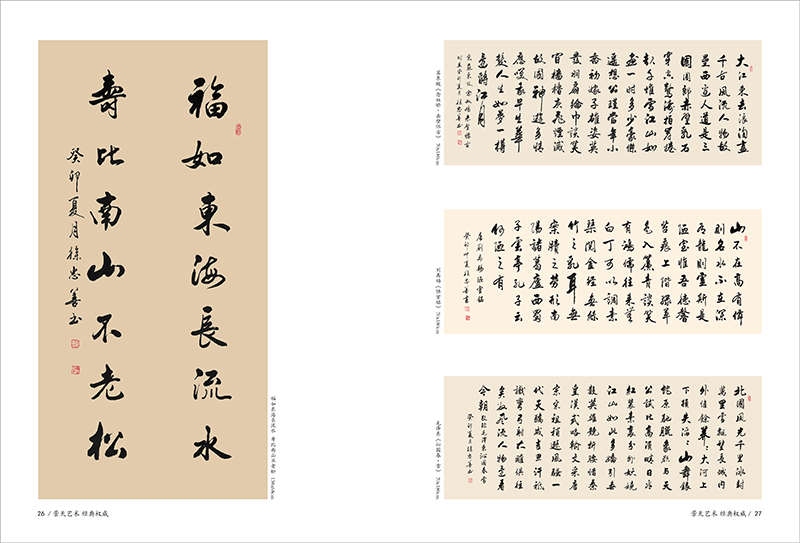 福如東海長流水
壽比南山不老松
癸卯夏月徐忠善书
福如东海长流水 寿比南山不老松
26 / 景天艺术 经典权威
大江東去浪淘盡
千古風流人物故
壘西邊人道是三
國周郎赤壁亂石
穿空驚濤拍岸捲
起千堆雪江山如
畫一時多少豪傑
遥想公瑾當年小
喬初嫁了雄姿英
發羽扇綸巾談笑
間檣櫓灰飛煙滅
故國神遊多情
應笑我早生華
髮人生如夢一樽
還酹江月
苏东坡《念奴娇·赤壁怀古》 70x180cm
山不在高有僊
則名水不在深
有龍則靈斯是
陋室惟吾德馨
苔痕上階綠草
色入簾青談笑
有鴻儒往来無
白丁可以調素
琴閱金經無絲
竹之亂耳無
案牘之勞形南
陽諸葛廬西蜀
子雲亭孔子云
何陋之有
唐劉禹錫陋室銘
刘禹锡《陋室铭》 70x180cm
北國風光千里冰封
萬里雪飄望長城内
外惟餘莽々大河上
下頓失滔々山舞銀
蛇原馳臘象欲与天
公試比高須晴日看
紅裝素裹分外妖嬈
江山如此多嬌引無
數英雄競折腰惜秦
皇漢武略輸文采唐
宗宋祖稍遜風騷一
代天驕成吉思汗祇
識彎弓射大雕俱往
矣數風流人物還看
今朝
敬錄毛澤東沁園春雪
癸卯夏月徐忠善书
毛泽东《沁园春·雪》 70x180cm
景天艺术 经典权威 / 27